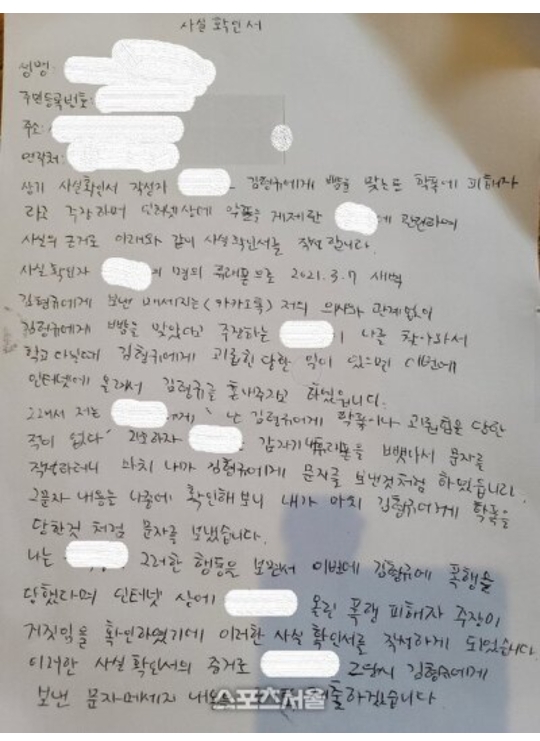 사실 확인서
성명:
주민등록번호:
주소:
연락처:
상기 사실확인서 작성자 김형규에게 뺨을 맞는 학폭에 피해자
라고 주장하며 인터넷상에 악플을 게제한 에 관련하여
사실의 근거로 아래와 같이 사실확인서를 작성합니다.
사실확인자 의 명의 휴대폰으로 2021.3.7 새벽
김형규에게 보낸 메세지는(카카오톡) 저의 의사와 관계없이
김형규에게 뺨을 맞았다고 주장하는 이 나를 찾아와서
학교다닐때 김형규에게 괴롭힘 당한 일이 있으면 이번에
인터넷에 올려서 김형규를 혼내주자고 하였습니다.
그래서 저는 에게 '난 김형규에게 학폭이나 괴롭힘을 당한
적이 없다' 라고하자 갑자기 휴대폰을 뺏아서 문자를
작성하더니 마치 내가 김형규에게 문자를 보낸것처럼 하였습니다.
그문자 내용을 나중에 확인해보니 내가 마치 김형규에게 학폭을
당한것 처럼 문자를 보냈습니다.
나는 그러한 행동을 보면서 이번에 김형규에 폭행을
당했다며 인터넷 상에 올린 폭행 피해자 주장이
거짓임을 확인하였기에 이러한 사실 확인서를 작성하게 되었습니다.
이러한 사실 확인서의 증거로 그당시 김형규에게
보낸 문자메세지 내용을 출하겠습니다.
스포츠서울